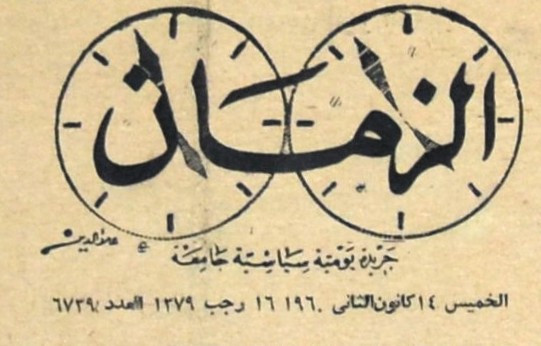 الزمان
جريدة يومية سياسية جامعة
الخميس ١٤ كانون الثاني ١٩٦٠ ١٦ رجب ١٣٧٩ العدد ٦٧٣٩